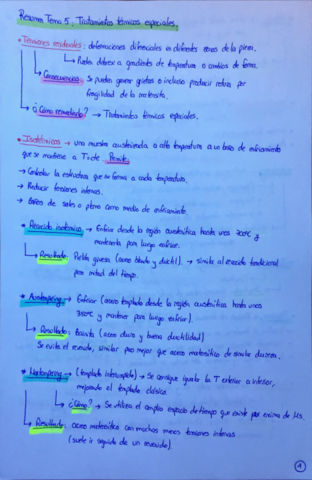 Resumen Tema 5. Tratamientos térmicos especiales.
* Tensiones residuales: deformaciones diferenciales en diferentes zonas de la pieza.
↳ Puede deberse a gradientes de temperatura o cambios de forma.
↳ Consecuencias: Se pueden generar grietas o incluso producir rotura por
fragilidad de la martensita.
↳ ¿Cómo remediarlo? → Tratamientos térmicos especiales.
* Isotérmicos → una muestra austenizada a alta temperatura a un baño de enfriamiento
que se mantiene a T=cte. Permite
→ Controlar la estructura que se forma a cada temperatura.
→ Reducir tensiones internas.
→ Baños de sales o plomo como medio de enfriamiento.
* Recocido isotérmico → Enfriar desde la región austenítica hasta unos 700ºC y
mantenerla para luego enfriar.
↳ Resultado: Perlita gruesa (acero blando y dúctil). → similar al recocido tradicional
por mitad del tiempo.
* Austempering → Enfriar (acero templado desde la región austenítica hasta unos
350ºC y mantener para luego enfriar).
↳ Resultado: Bainita (acero duro y buena ductilidad)
Se evita el revenido, similar pero mejor que acero martensítico de similar dureza.
* Martempering → (templado interrumpido) → Se consigue igualar la T exterior a interior,
mejorando el templado clásico.
↳ ¿Cómo? → Se utiliza el amplio espacio de tiempo que existe por encima de Ms.
↳ Resultado: acero martensítico con muchas menos tensiones internas
(suele ir seguido de un revenido).
1